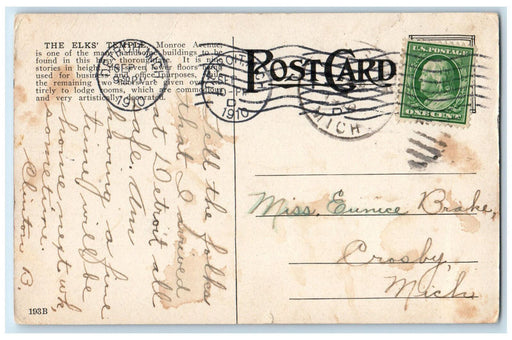 THE ELKS' TEMPLE, Monroe Avenue,
is one of the many handsome buildings to be
found in this busy thoroughfare. It is
stories in height, lower floors
used for business and office purposes,
the remaining two stories are given over
tirely to lodge rooms, which are commodious
and very artistically decorated.
POST CARD
1910
1910
MICH.
U.S. POSTAGE
ONE CENT
Tell the folks
that I arrived
at Detroit all
safe. Am
having a fine
time, will be
home next wk
sometime.
Clinton B.
Miss. Eunice Brake,
Crosby,
Mich.
193B